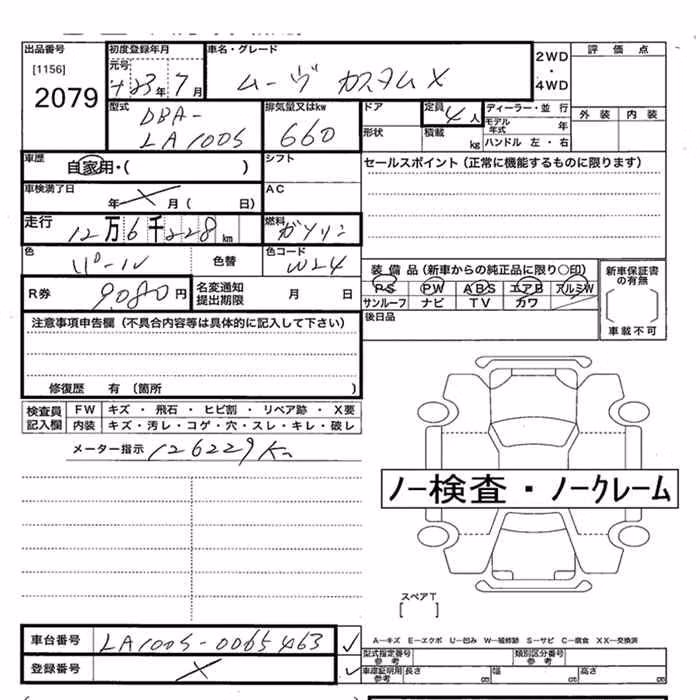 出品番号 初度登録年月 車名・グレード 2WD ・ 4WD 評価点
[1156] 元号 H23年7月 ムーヴ カスタムX
2079
型式 DBA-LA100S 排気量又はkw 660 ドア 定員 4人 ディーラー・並行 外装 内装
形状 積載 kg モデル年式 年
ハンドル 左・右
車歴 自家用・( ) シフト セールスポイント(正常に機能するものに限ります)
車検満了日 年 月( 日) AC
走行 12万6千228km 燃料 ガソリン
色 パール 色替 色コード W24 装備品(新車からの純正品に限り○印) 新車保証書の有無
PS PW ABS エアB アルミW
R券 9080円 名変通知提出期限 月 日 サンルーフ ナビ TV カワ
後日品 車載不可
注意事項申告欄(不具合内容等は具体的に記入して下さい)
修復歴 有(箇所 )
検査員記入欄 FW キズ・飛石・ヒビ割・リペア跡・X要
内装 キズ・汚レ・コゲ・穴・スレ・キレ・破レ
メーター指示 126229Km
ノー検査・ノークレーム
スペアT
[ ]
車台番号 LA100S-0065463
A―キズ E―エクボ U―凹み W―補修跡 S―サビ C―腐食 XX―交換済
型式指定番号 参考 類別区分番号 参考
登録番号 X
車庫証明用 参考 長さ cm 幅 cm 高さ cm